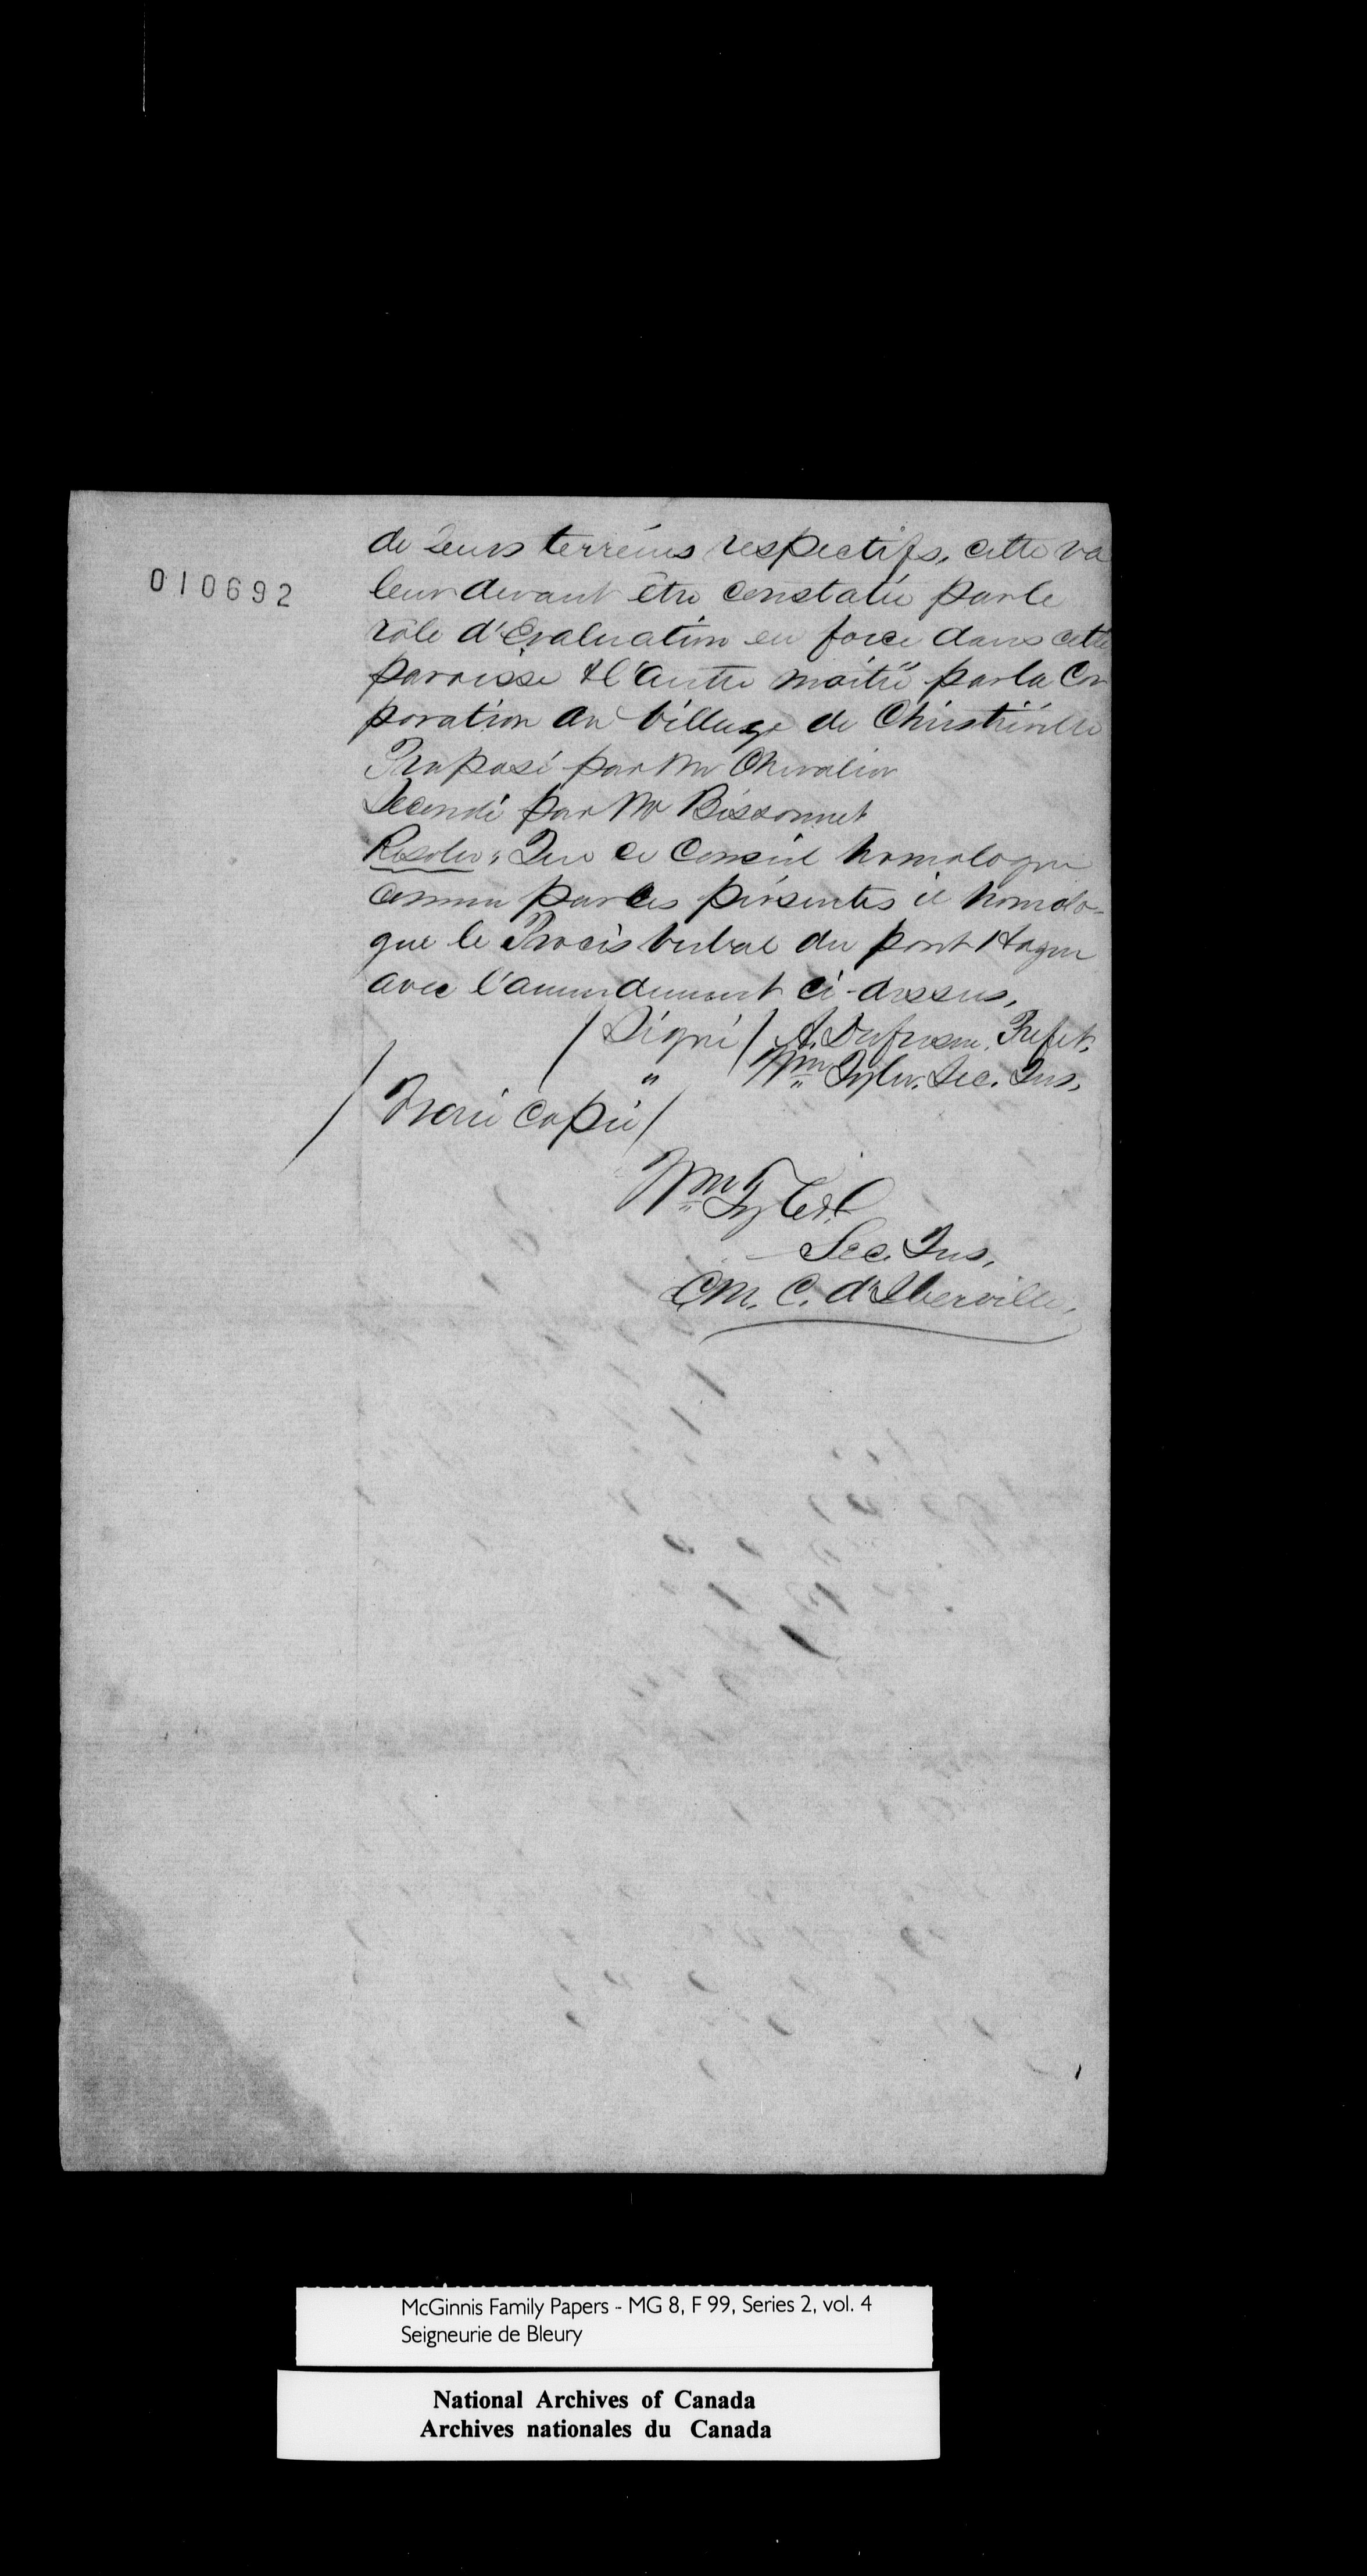 010692
de leurs terreins respectifs, cette va
leur devant être constatée par le
rôle d'Evaluation en force dans cette
paroisse & l'autre moitié par la Cor
poration du Village de Christieville
Proposé par Mr Chevalier
Secondé par Mr Bissonnet
Resolu, Que ce Conseil homologue
comme par les présentes il homolo-
gue le Procès verbal du pont Hazen
avec l'amendement ci-dessus,
/ Signé / A. Dufresne. Prefet,
" Wm Tyler. Sec. Trés,
/ Vraie Copie /
Wm Tyler
Sec. Trés,
C. M. C. d'Iberville,
McGinnis Family Papers - MG 8, F 99, Series 2, vol. 4
Seigneurie de Bleury
National Archives of Canada
Archives nationales du Canada